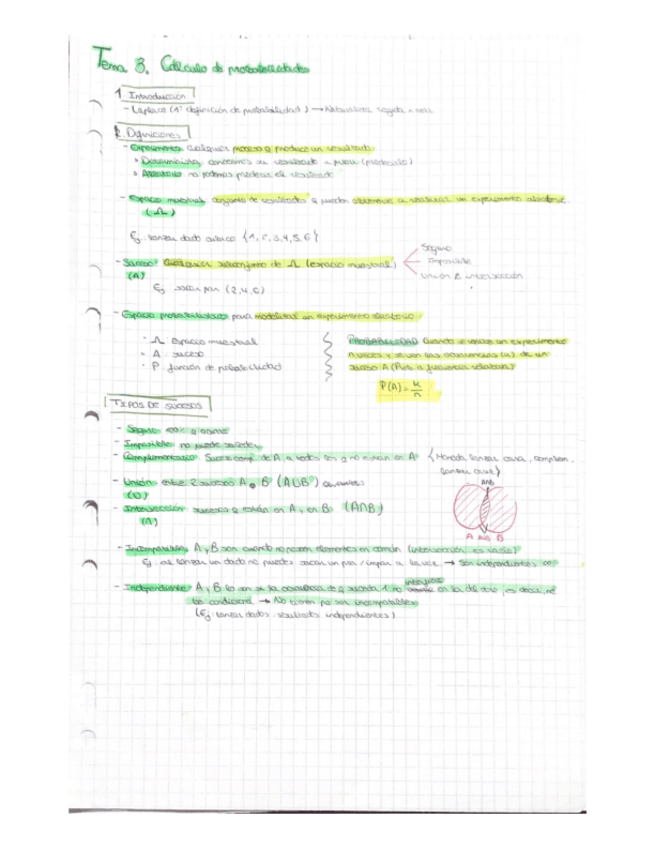 Tema 3. Cálculo de probabilidades
1. Introducción
- Laplace (1ª definición de probabilidad) → Naturaleza regida a
2. Definiciones
- Experimento: cualquier proceso q produce un resultado
• Determinista: conocemos su resultado a priori
• Aleatorio: no podemos predecir el resultado
- Espacio muestral: conjunto de resultados q pueden obtenerse al realizar un experimento aleatorio.
(Ω)
Ej: lanzar dado cúbico {1, 2, 3, 4, 5, 6}
- Suceso: Cualquier subconjunto de Ω (espacio muestral)
(A)
Seguro
Imposible
Unión e intersección
Ej: sacar par (2, 4, 6)
- Espacio probabilístico para modelizar un experimento aleatorio
· Ω espacio muestral
· A: suceso
· P función de probabilidad
PROBABILIDAD Cuando se realiza un experimento
n veces y se ven las ocurrencias (k) de un
suceso A (P(A) = frecuencia relativa)
P(A) = k/n
TIPOS DE SUCESOS
- Seguro: 100% q ocurre
- Imposible: no puede suceder
- Complementario: Suceso comp. de A, a todos los q no están en A { Moneda, lanzar cara, complem.
lanzar cruz }
- Unión: entre 2 sucesos A o B (A∪B)
(∪)
- Intersección: sucesos q están en A y en B (A∩B)
(∩)
A∩B
A A∪B B
- Incompatibles: A y B son cuando no poseen elementos en común (intersección es vacía)
Ej: al lanzar un dado no puedes sacar un par/impar a la vez → Son independientes
- Independiente: A y B lo son si la ocurrencia de q suceda 1 no influye en la del otro, es decir, no
se condiciona → No tienen pq ser incompatibles
(Ej: lanzar dados: resultados independientes)